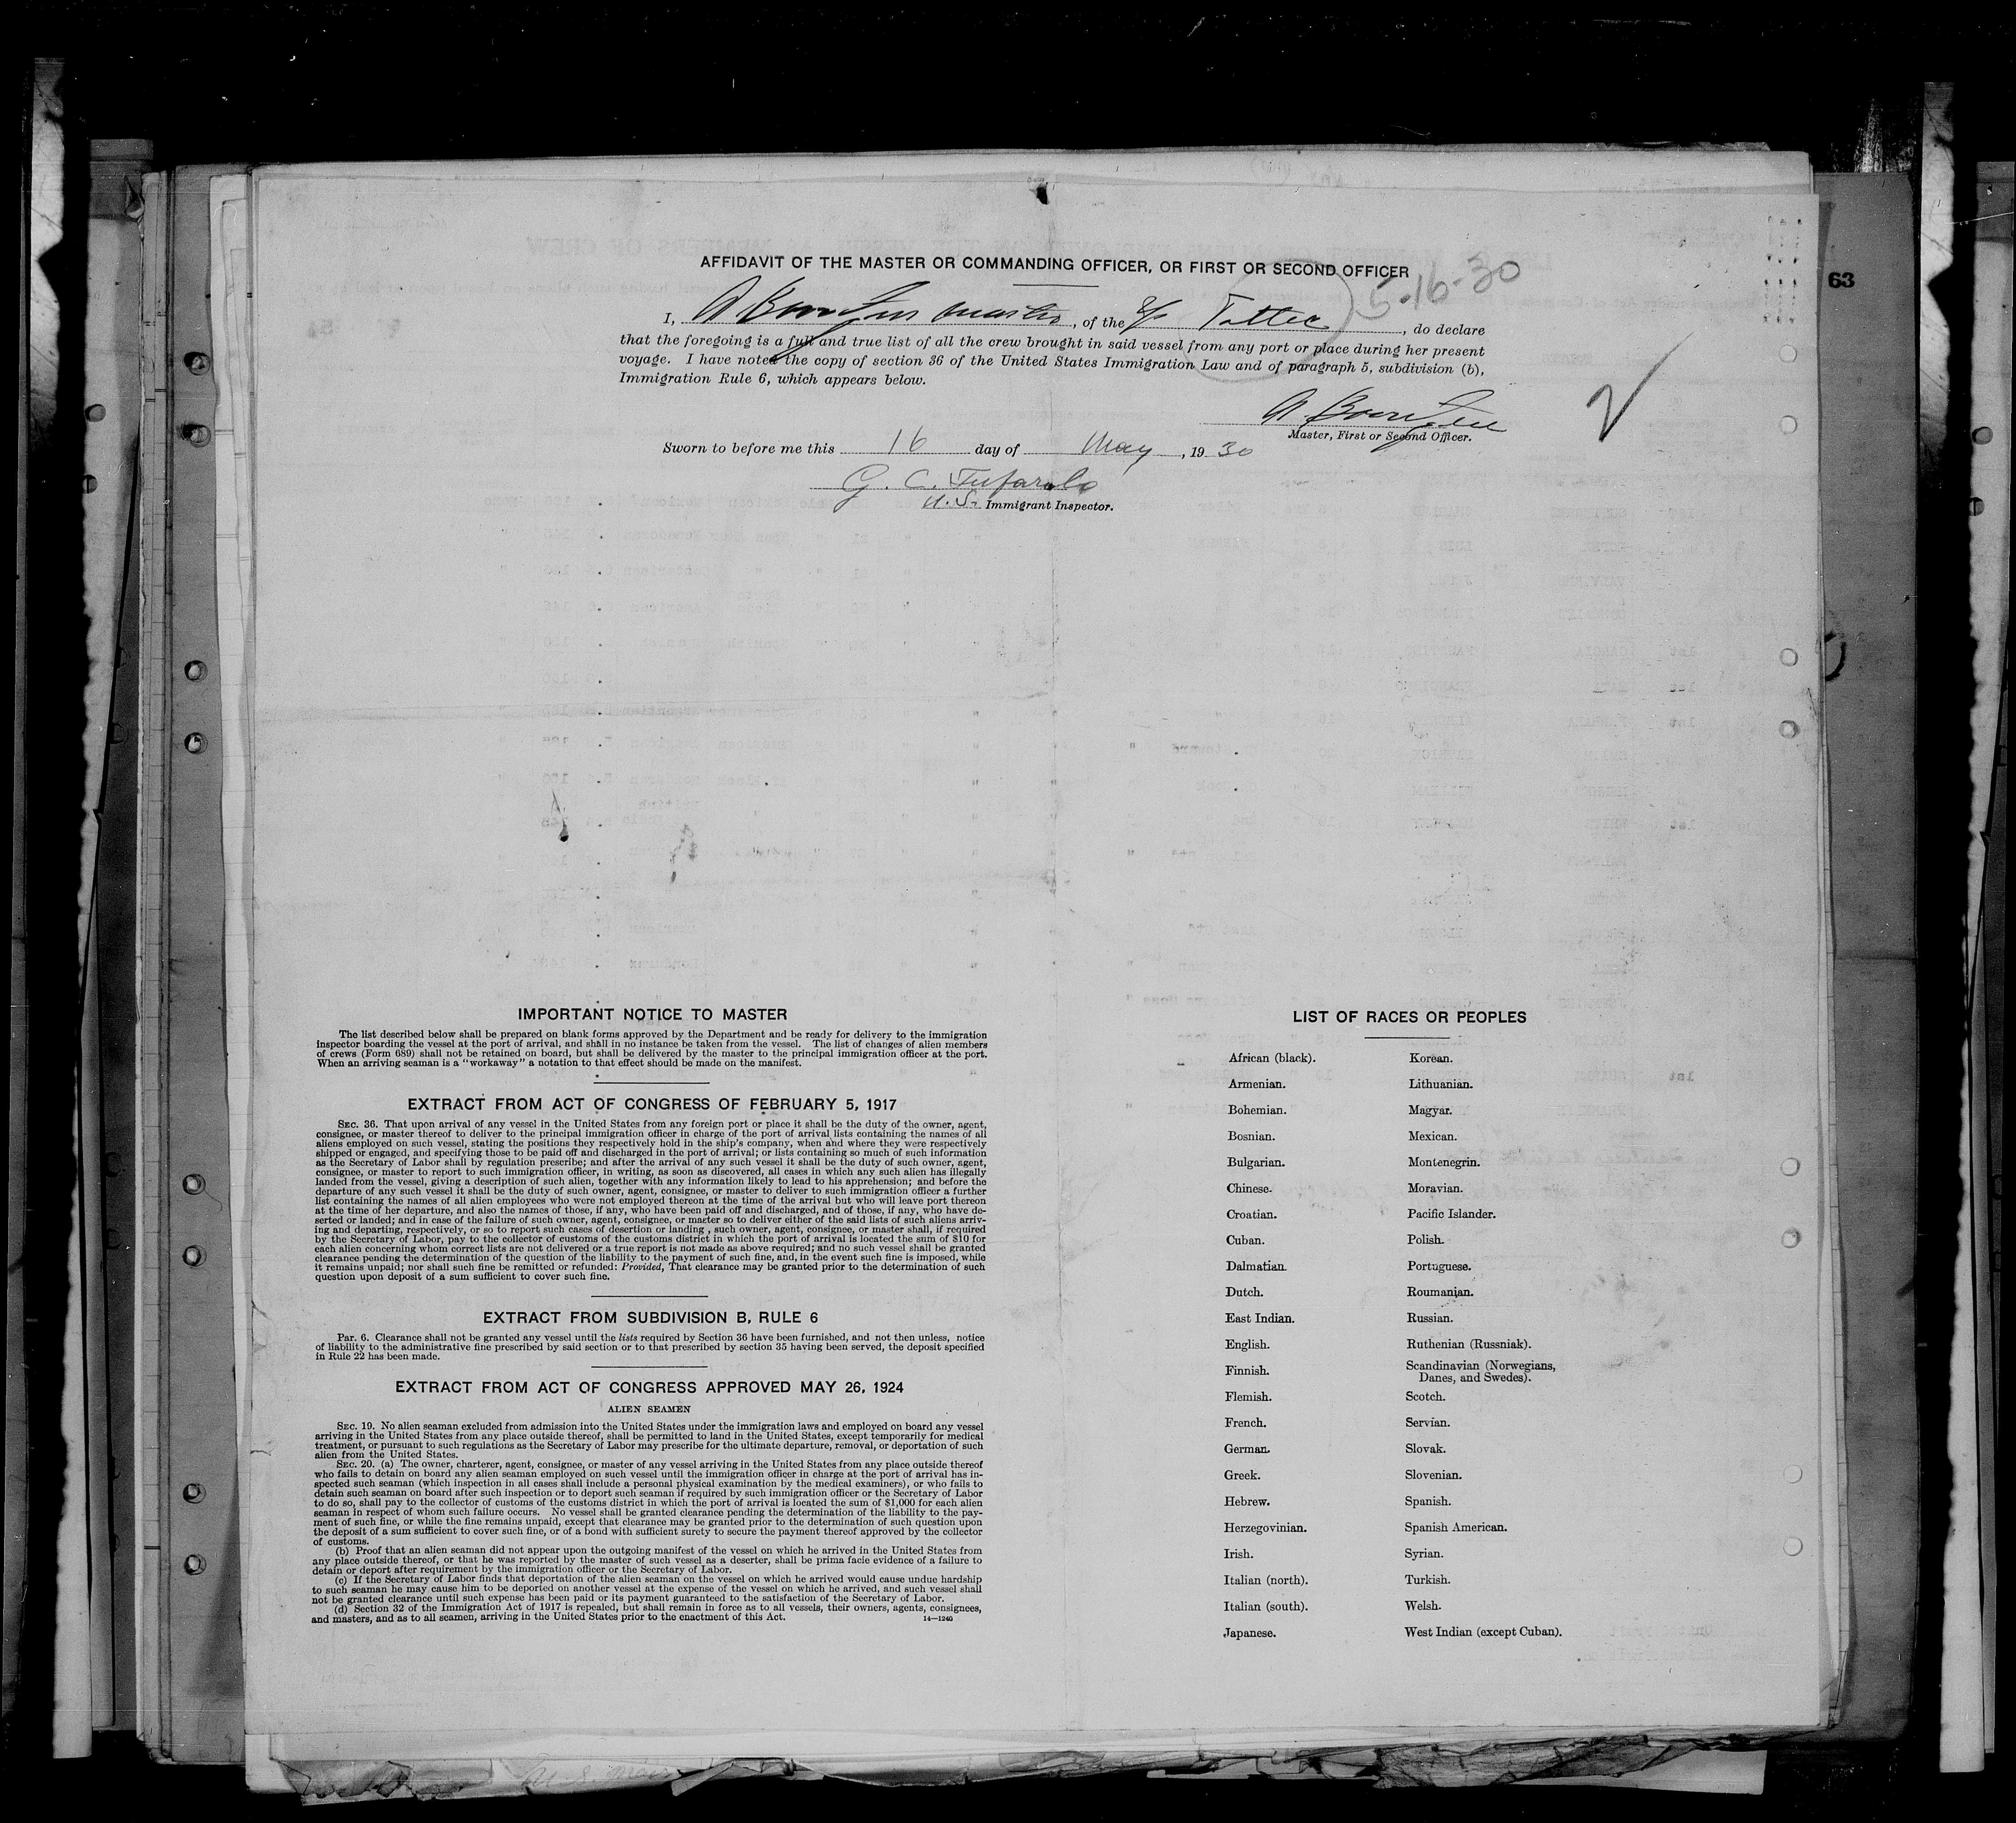 63
AFFIDAVIT OF THE MASTER OR COMMANDING OFFICER, OR FIRST OR SECOND OFFICER
5-16-30
I, A master, of the S/S , do declare
that the foregoing is a full and true list of all the crew brought in said vessel from any port or place during her present
voyage. I have noted the copy of section 36 of the United States Immigration Law and of paragraph 5, subdivision (b),
Immigration Rule 6, which appears below.
Master, First or Second Officer.
Sworn to before me this 16 day of May, 1930
G. C. Tufarolo
U.S. Immigrant Inspector.
IMPORTANT NOTICE TO MASTER
The list described below shall be prepared on blank forms approved by the Department and be ready for delivery to the immigration
inspector boarding the vessel at the port of arrival, and shall in no instance be taken from the vessel. The list of changes of alien members
of crews (Form 689) shall not be retained on board, but shall be delivered by the master to the principal immigration officer at the port.
When an arriving seaman is a "workaway" a notation to that effect should be made on the manifest.
EXTRACT FROM ACT OF CONGRESS OF FEBRUARY 5, 1917
SEC. 36. That upon arrival of any vessel in the United States from any foreign port or place it shall be the duty of the owner, agent,
consignee, or master thereof to deliver to the principal immigration officer in charge of the port of arrival lists containing the names of all
aliens employed on such vessel, stating the positions they respectively hold in the ship's company, when and where they were respectively
shipped or engaged, and specifying those to be paid off and discharged in the port of arrival; or lists containing so much of such information
as the Secretary of Labor shall by regulation prescribe; and after the arrival of any such vessel it shall be the duty of such owner, agent,
consignee, or master to report to such immigration officer, in writing, as soon as discovered, all cases in which any such alien has illegally
landed from the vessel, giving a description of such alien, together with any information likely to lead to his apprehension; and before the
departure of any such vessel it shall be the duty of such owner, agent, consignee, or master to deliver to such immigration officer a further
list containing the names of all alien employees who were not employed thereon at the time of the arrival but who will leave port thereon
at the time of her departure, and also the names of those, if any, who have been paid off and discharged, and of those, if any, who have de-
serted or landed; and in case of the failure of such owner, agent, consignee, or master so to deliver either of the said lists of such aliens arriv-
ing and departing, respectively, or so to report such cases of desertion or landing , such owner, agent, consignee, or master shall, if required
by the Secretary of Labor, pay to the collector of customs of the customs district in which the port of arrival is located the sum of $10 for
each alien concerning whom correct lists are not delivered or a true report is not made as above required; and no such vessel shall be granted
clearance pending the determination of the question of the liability to the payment of such fine, and, in the event such fine is imposed, while
it remains unpaid; nor shall such fine be remitted or refunded: Provided, That clearance may be granted prior to the determination of such
question upon deposit of a sum sufficient to cover such fine.
EXTRACT FROM SUBDIVISION B, RULE 6
Par. 6. Clearance shall not be granted any vessel until the lists required by Section 36 have been furnished, and not then unless, notice
of liability to the administrative fine prescribed by said section or to that prescribed by section 35 having been served, the deposit specified
in Rule 22 has been made.
EXTRACT FROM ACT OF CONGRESS APPROVED MAY 26, 1924
ALIEN SEAMEN
SEC. 19. No alien seaman excluded from admission into the United States under the immigration laws and employed on board any vessel
arriving in the United States from any place outside thereof, shall be permitted to land in the United States, except temporarily for medical
treatment, or pursuant to such regulations as the Secretary of Labor may prescribe for the ultimate departure, removal, or deportation of such
alien from the United States.
SEC. 20. (a) The owner, charterer, agent, consignee, or master of any vessel arriving in the United States from any place outside thereof
who fails to detain on board any alien seaman employed on such vessel until the immigration officer in charge at the port of arrival has in-
spected such seaman (which inspection in all cases shall include a personal physical examination by the medical examiners), or who fails to
detain such seaman on board after such inspection or to deport such seaman if required by such immigration officer or the Secretary of Labor
to do so, shall pay to the collector of customs of the customs district in which the port of arrival is located the sum of $1,000 for each alien
seaman in respect of whom such failure occurs. No vessel shall be granted clearance pending the determination of the liability to the pay-
ment of such fine, or while the fine remains unpaid, except that clearance may be granted prior to the determination of such question upon
the deposit of a sum sufficient to cover such fine, or of a bond with sufficient surety to secure the payment thereof approved by the collector
of customs.
(b) Proof that an alien seaman did not appear upon the outgoing manifest of the vessel on which he arrived in the United States from
any place outside thereof, or that he was reported by the master of such vessel as a deserter, shall be prima facie evidence of a failure to
detain or deport after requirement by the immigration officer or the Secretary of Labor.
(c) If the Secretary of Labor finds that deportation of the alien seaman on the vessel on which he arrived would cause undue hardship
to such seaman he may cause him to be deported on another vessel at the expense of the vessel on which he arrived, and such vessel shall
not be granted clearance until such expense has been paid or its payment guaranteed to the satisfaction of the Secretary of Labor.
(d) Section 32 of the Immigration Act of 1917 is repealed, but shall remain in force as to all vessels, their owners, agents, consignees,
and masters, and as to all seamen, arriving in the United States prior to the enactment of this Act.
14—1240
LIST OF RACES OR PEOPLES
African (black).
Armenian.
Bohemian.
Bosnian.
Bulgarian.
Chinese.
Croatian.
Cuban.
Dalmatian.
Dutch.
East Indian.
English.
Finnish.
Flemish.
French.
German.
Greek.
Hebrew.
Herzegovinian.
Irish.
Italian (north).
Italian (south).
Japanese.
Korean.
Lithuanian.
Magyar.
Mexican.
Montenegrin.
Moravian.
Pacific Islander.
Polish.
Portuguese.
Roumanian.
Russian.
Ruthenian (Russniak).
Scandinavian (Norwegians,
Danes, and Swedes).
Scotch.
Servian.
Slovak.
Slovenian.
Spanish.
Spanish American.
Syrian.
Turkish.
Welsh.
West Indian (except Cuban).